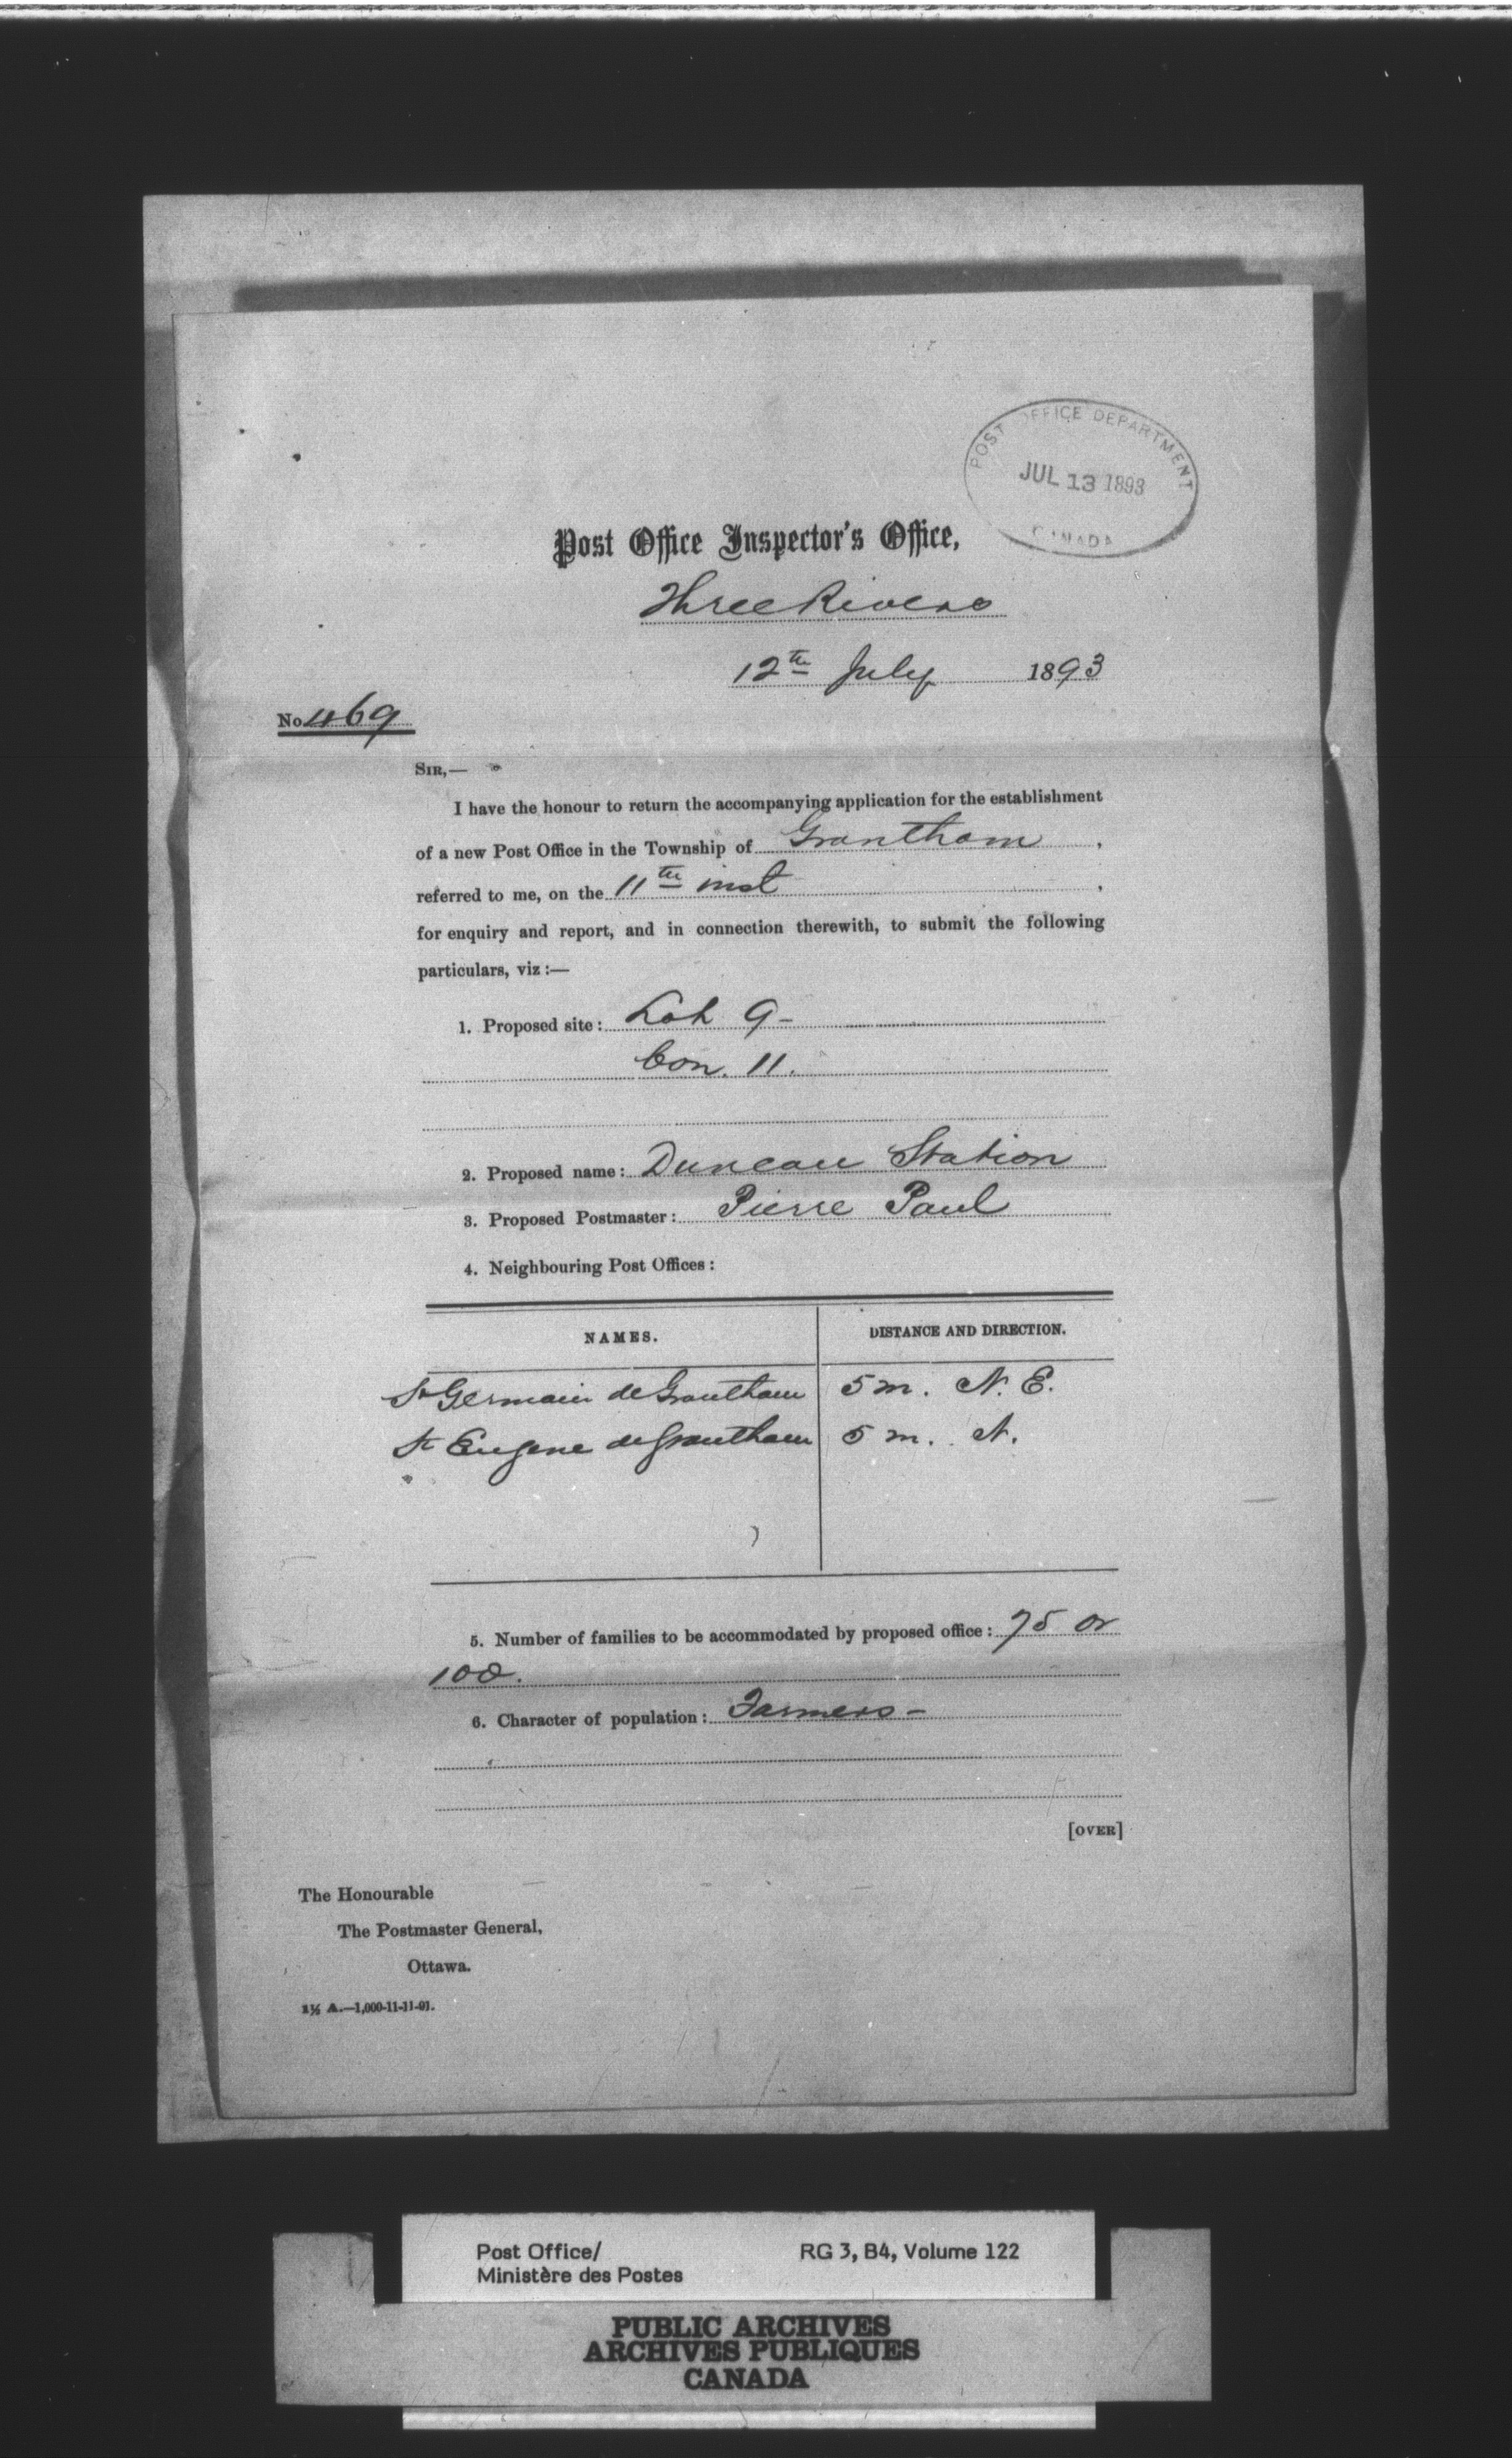 POST OFFICE DEPARTMENT
JUL 13 1893
CANADA
Post Office Inspector's Office,
Three Rivers
12th July 1893
No 469
SIR,—
I have the honour to return the accompanying application for the establishment
of a new Post Office in the Township of Grantham,
referred to me, on the 11th inst,
for enquiry and report, and in connection therewith, to submit the following
particulars, viz:—
1. Proposed site: Lot 9-
Con. 11.
2. Proposed name: Duncan Station
3. Proposed Postmaster: Pierre Paul
4. Neighbouring Post Offices:
NAMES. DISTANCE AND DIRECTION.
St Germain de Grantham 5 m. N. E.
St Eugene de Grantham 5 m. N.
5. Number of families to be accommodated by proposed office: 75 or
100.
6. Character of population: Farmers-
[OVER]
The Honourable
The Postmaster General,
Ottawa.
2½ A.—1,000-11-11-91.
Post Office/ RG 3, B4, Volume 122
Ministère des Postes
PUBLIC ARCHIVES
ARCHIVES PUBLIQUES
CANADA